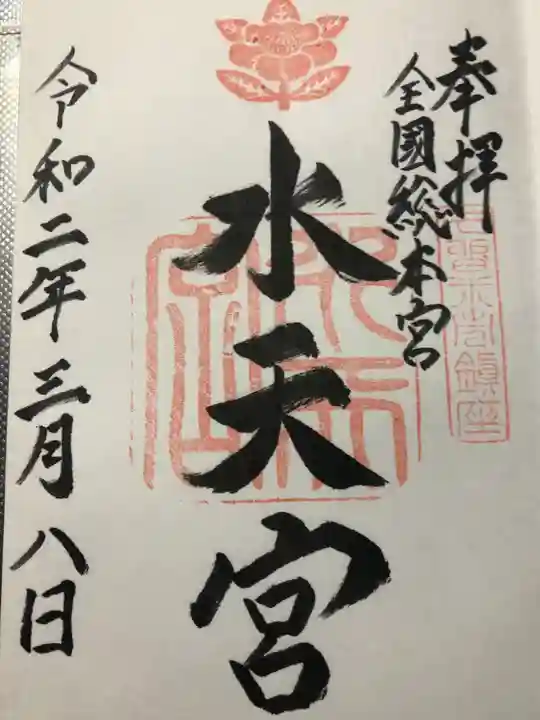 奉拝
全國総本宮
水天宮
令和二年三月八日